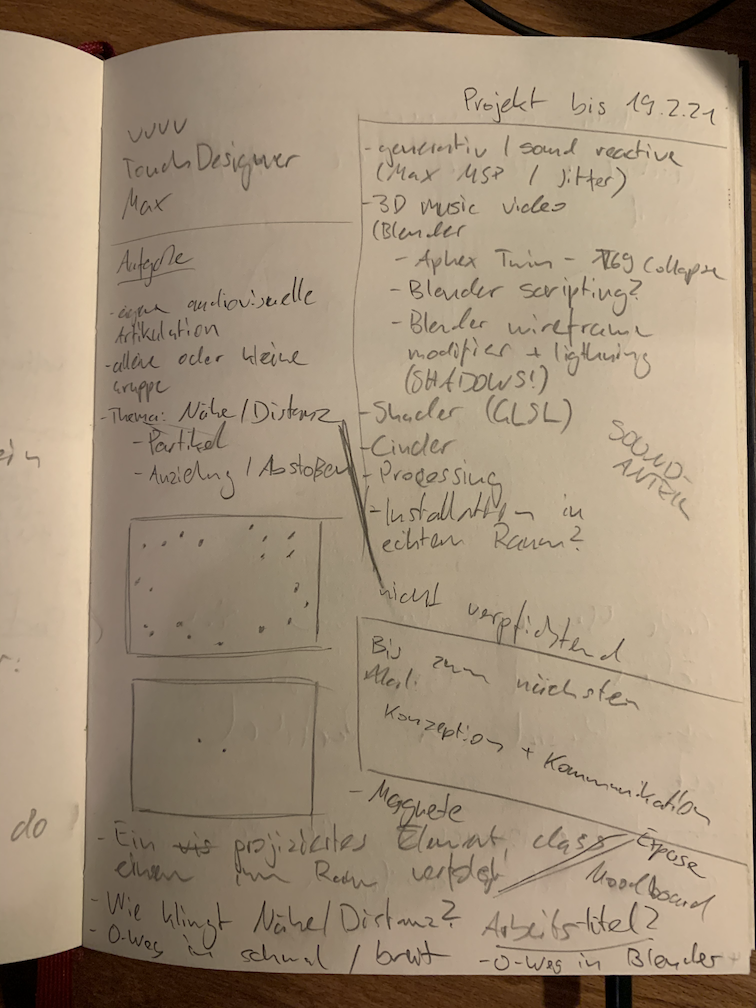 Projekt bis 19.2.21
vvvv
TouchDesigner
Max
Aufgabe
- eigene audiovisuelle
Artikulation
- alleine oder kleine
Gruppe
- Thema: Nähe/Distanz
- Partikel
- Anziehung / Abstoßen
- generativ / sound reactive
(Max MSP / Jitter)
- 3D music video
(Blender
- Aphex Twin - T69 Collapse
- Blender scripting?
- Blender wireframe
modifier + ligthning
(SHADOWS!)
- Shader (GLSL)
- Cinder
- Processing
- Installation in
echtem Raum?
SOUND-
ANTEIL
nicht verpflichtend
Bis zum nächsten
Mal:
Konzeption + Kommunikation
- Magnete
Expose
Moodboard
- Ein vis projiziertes Element, dass
einen im Raum verfolgt
- Wie klingt Nähe/Distanz?
Arbeitstitel?
- O-Weg in schmal / breit
- O-Weg in Blender
ein
do